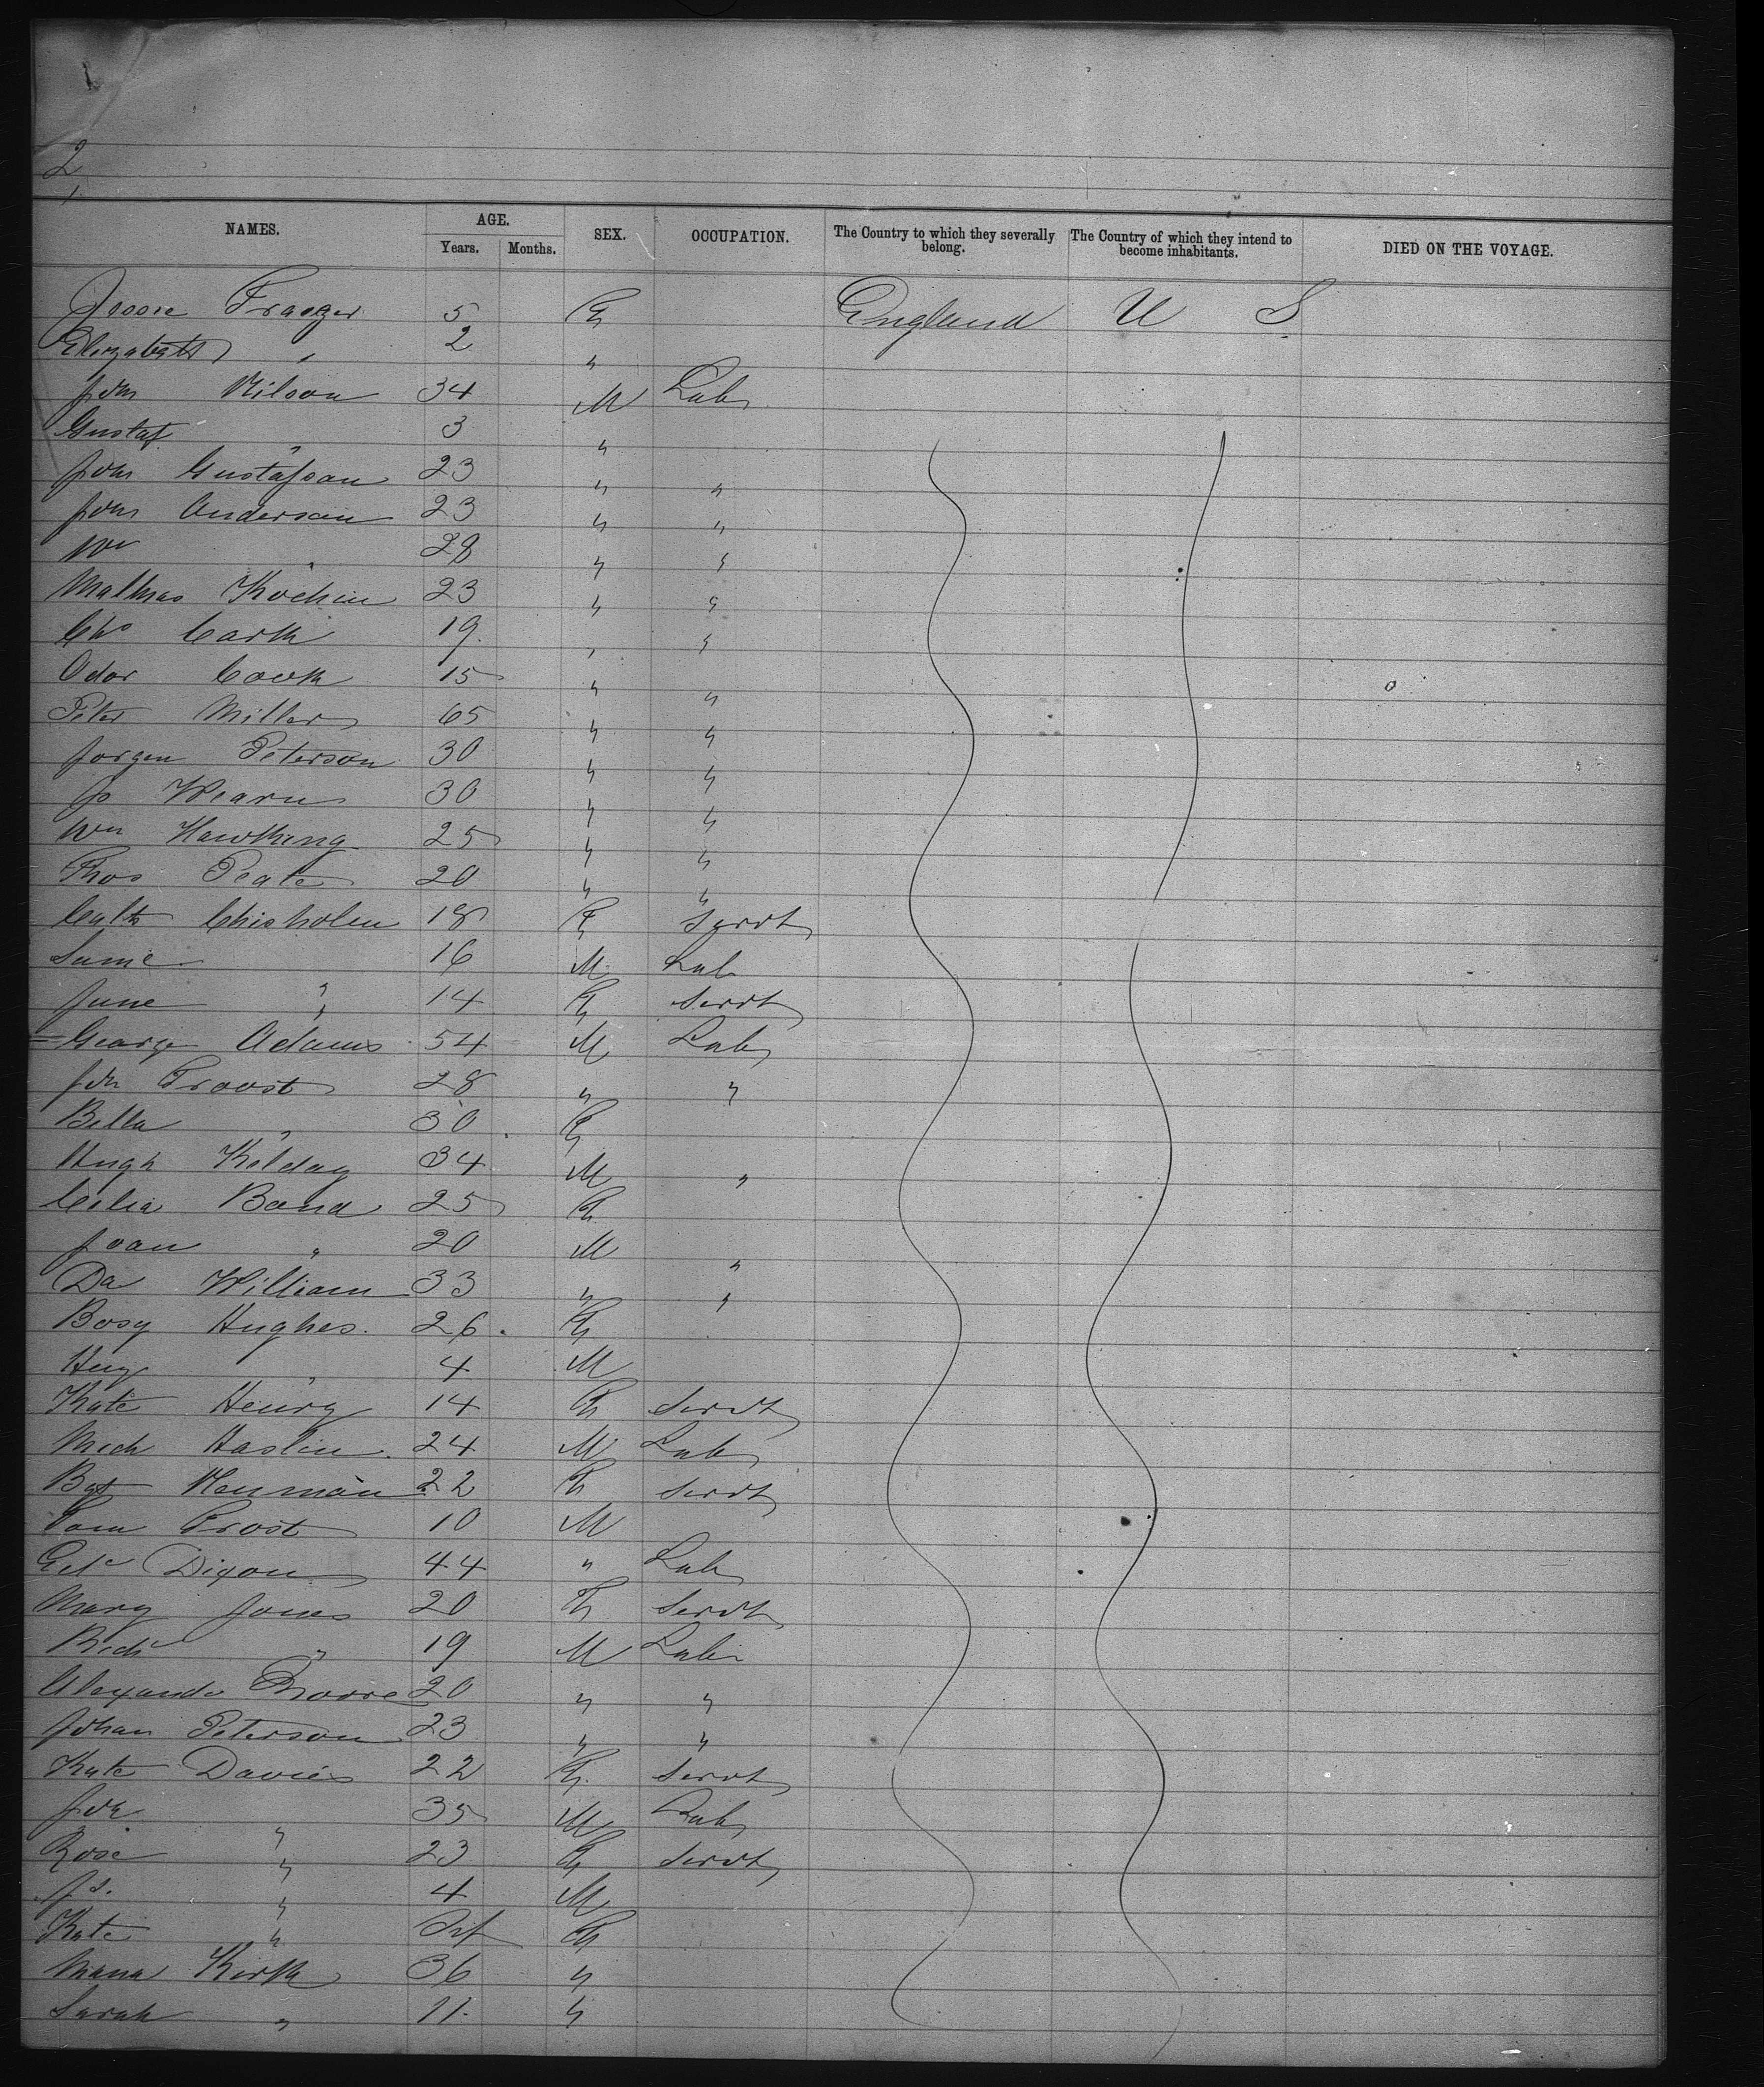 2
NAMES. AGE. SEX. OCCUPATION. The Country to which they severally belong. The Country of which they intend to become inhabitants. DIED ON THE VOYAGE.
Years. Months.
Jessie Fraezer 5 F England U S
Elizabeth " 2 "
Jon Nilson 34 M Lab
Gustaf " 3 "
John Gustafson 23 " "
John Anderson 23 " "
Wm " 28 " "
Mathias Kochin 23 " "
Chs Cark 19 " "
Odor Cook 15 " "
Peter Miller 65 " "
Jorgen Peterson 30 " "
Jo Wearn 30 " "
Wm Hawking 25 " "
Thos Peate 20 " "
Cath Chisholm 18 F Servt
Samie " 16 M Lab
June " 14 F Servt
George Adams 54 M Lab
Jon Provost 28 " "
Bella " 30 F
Hugh Kelday 34 M "
Celia Bond 25 F
Joan " 20 M "
Da William 33 " "
Bosy Hughes. 26. F
Hug " 4 M
Kate Henry 14 F Servt
Mich Haslin 24 M Lab
Bgt Henman 22 F Servt
Tom Prost 10 M
Dixon 44 " Lab
Mary Jones 20 F Servt
Richd " 19 M Lab
Alexande 20 " "
Johan Peterson 23 " "
Kate Davies 22 F Servt
Joe " 35 M Lab
Rose " 23 F Servt
Js. " 4 M
Kate " Inf F
Maria Kirk 36 "
Sarah " 11 "